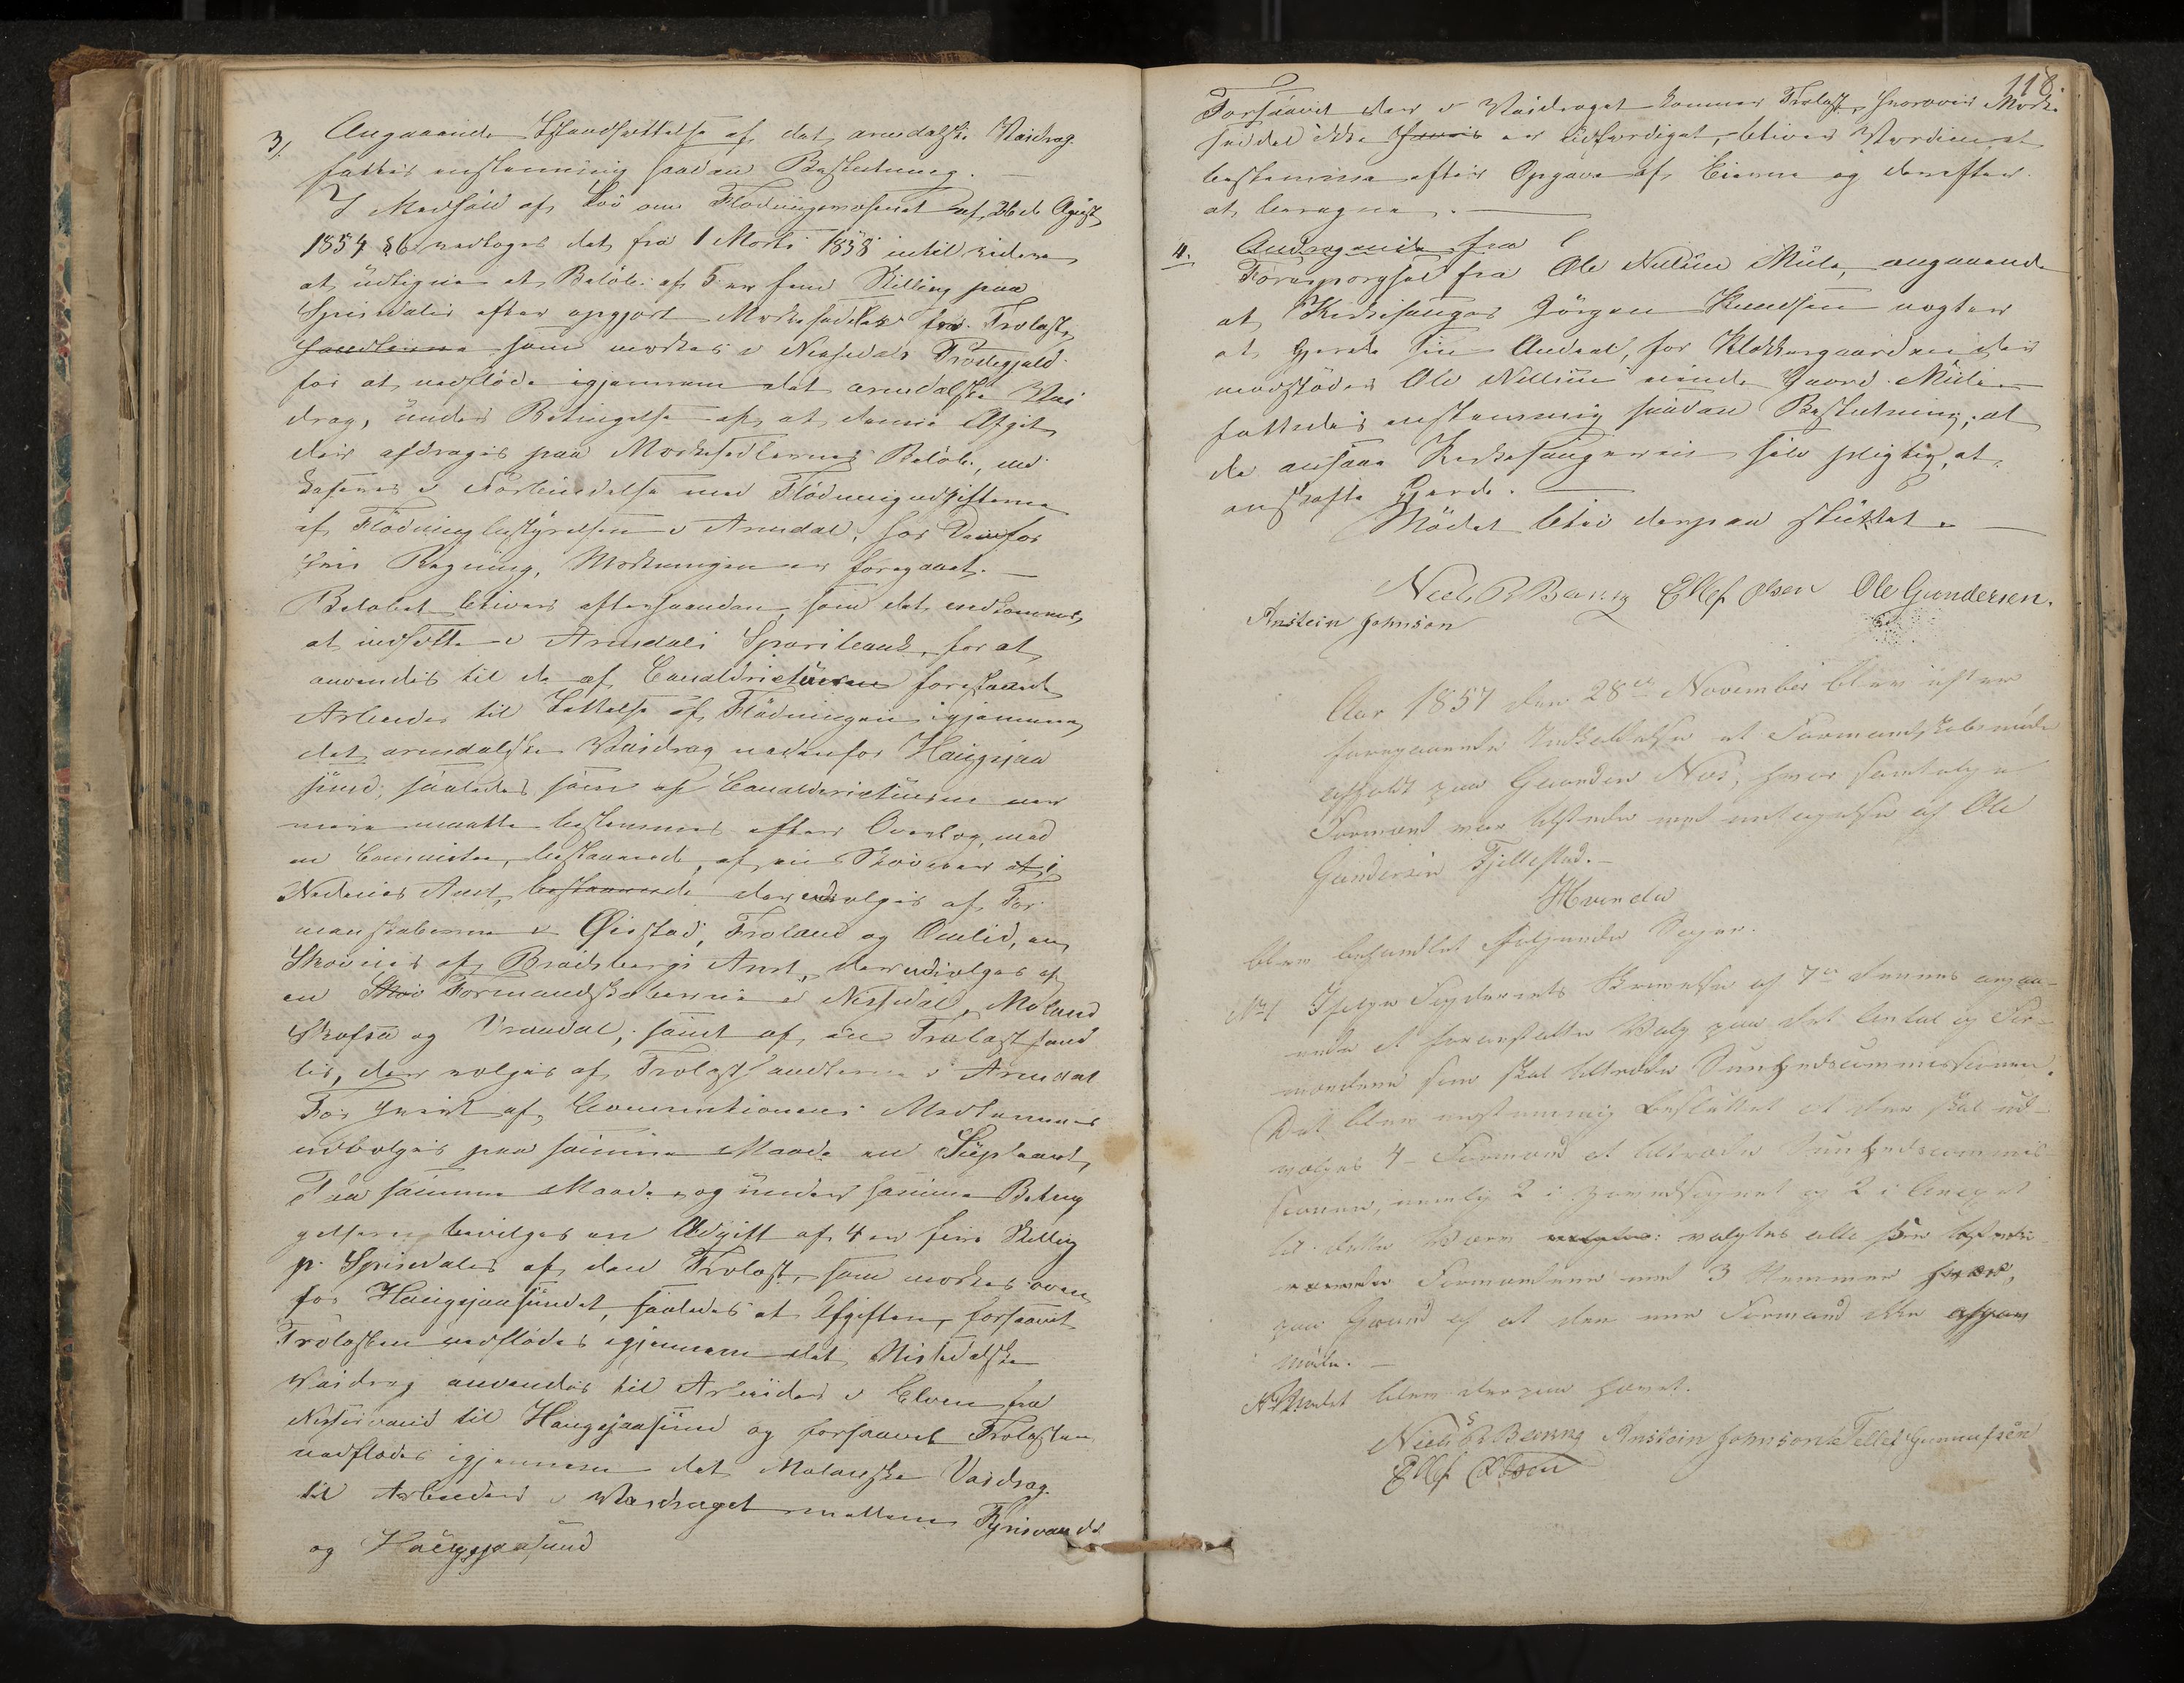 3/. Angaaende Istandsættelse af det arendalske Vasdrag
fattes enstemmig saadan Beslutning. —
I Medhold af Lov om Flødningsvæsenet af 26de August
1854 § 6 vedtoges det fra 1 Marts 1858 indtil videre
at udligne et Beløb af 5 er fem Skilling paa
Speciedaler efter opgjort Merkeseddel fra Trælast
handlerne som merkes i Nissedals Præstegjeld
for at nedfløde igjennem det arendalske Vas
drag, under Betingelse af at denne Afgift
der afdrages paa Merkesedlernes Beløb, ind
kasseres i Forbindelse med Flødningsudgifterne
af Flødningsbestyrelsen i Arendal, hos Dem for
hvis Regning, Merkningen er foregaaet. —
Beløbet bliver efterhaanden, som det indkommer,
at indsætte i Arendals Sparebank, for at
anvendes til de af Canaldirecteuren forestaaede
Arbeider til Lettelse af Flødningen igjennem
det arendalske Vasdrag nedenfor Haugsjaa
sund, saaledes som af Canaldirecteuren nær
mere maatte bestemmes efter Overlæg med
en Committee, bestaaende af en Skoveier af i
Nedenes Amt, bestaaende der udvælges af For
mandskaberne i Øiestad, Froland og Omlid, en
Skoveier af Bradsbergs Amt, der udvælges af
en Skov Formandskaberne i Nissedal, Moland
Skafsaa og Vraadal, samt af en Trælasthand
ler, der vælges af Trælasthandlerne i Arendal
For hvert af Committeens Medlemmer
udvælges paa samme Maade en Suppleant,
Paa samme Maade og under samme Beting
gelser bevilges en Afgift af 4 er fire Skilling
pr. Speciedaler af den Trælast, som merkes oven
for Haugsjaasundet, saaledes at Afgiften, forsaavidt
Trælasten nedflødes igjennem det Nissedalske
Vasdrag anvendes til Arbeider i Elven fra
Nisservand til Haugsjaasund og forsaavidt Trælasten
nedflødes igjennem det Molandske Vasdrag.
til Arbeider i Vasdraget mellem Fyrisvand
og Haugsjaasund
118
Forsaavidt der i Vasdraget kommer Trælast, hvorover Merke
seddel ikke er udfærdiget, bliver Værdien at
bestemme efter Opgave af Eierne og derefter
at beregne. —
4. Andragende fra
Forespørgsel fra Ole Nielsen Mule, angaaende
at Kirkesanger Jørgen Knudsen negter
at Gjerde sin Andeel, for Klokkergaarden der
modstøder Ole Nielsen eiende Gaard Mule
fattedes enstemmig saadan Beslutning, at
de ansaae Kirkesangeren selv pligtig at
anskaffe Gjerde. —
Mødet blev derpaa sluttet. —
Niels R Beanng Ellef Olsen Ole Gundersen.
Anstein Johnson
Aar 1857 den 28de November blev efter
foregaaende Indkaldelse et Formandskabsmøde
afholdt paa Gaarden Næs, hvor samtlige
Formænd var tilstede med undtagelse af Ole
Gundersen Fjellestad. —
Hvorda
blev behandlet følgende Sager.
No 1 Ifølge Fogderiets Skrivelse af 7de dennes angaa-
ende at foranstalte Valg paa det Antal af For-
mændene som skal tiltræde Sundhedscommissionen.
Det blev enstemmig besluttet at der skal ud-
vælges 4 Formænd at tiltræde Sundhedscommis
sionen, nemlig 2 i hovedsognet og 2 i Annexet
til dette Hverv valgtes alle fire tilstede
værende Formændene med 3 Stemmer hver,
paa Grund af at den ene Formand ikke
møde. —
Mødet blev derpaa hævet.
Niels R Beanng Anstein Johnson Tellef Gunnufsen
Ellef Olsen